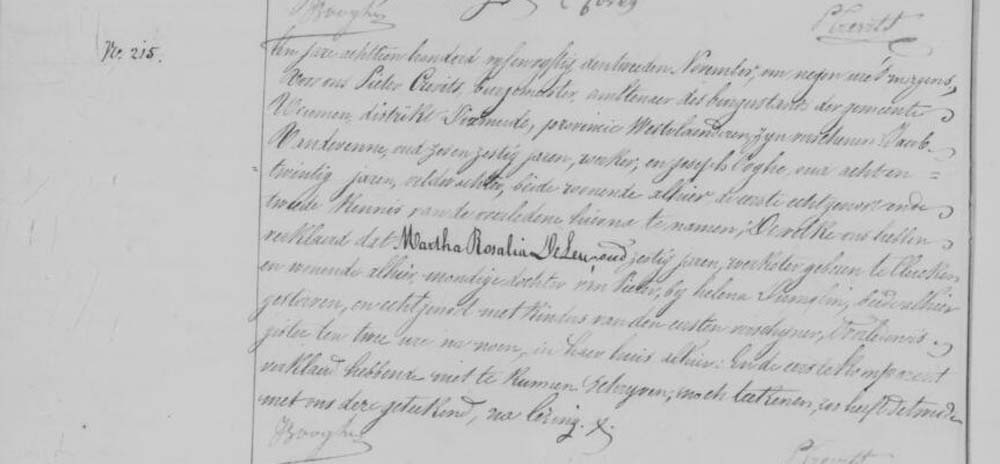 Boogher
P Crevits
No. 215.
Ten jare achttien honderd vyfenvyftig den tweeden November, om negen ure 's morgens,
Voor ons Pieter Crevits, burgemeester, amttenaer des burgerstands der gemeente
Woumen, distrikt Dixmude, provincie Westvlaenderen, zyn verschenen: Jacob
Vandevenne, oud zesenzestig jaren, werker, en Joseph Coghe, oud achten =
twintig jaren, veldwachter, beide woonende alhier de eerste echtgenoot ende
tweede kennis van de overledene hierna te namen; Dewelke ons hebben
verklaerd dat Martha Rosalia De Leu, oud zestig jaren, werkster geboren te Clercken
en wonende alhier, mondige dochter van Pieter, by helena Pumolin, beide alhier
gestorven, en echtgenoot met kinders van den eersten verschyner, Overleden is
gister ten twee ure na noen, in haer huis alhier: En de eerste komparant
verklaerd hebbende niet te kunnen schryven, noch teekenen, zoo heeft de tweede
met ons deze geteekend, na lezing. X.
Boogher
P Crevits